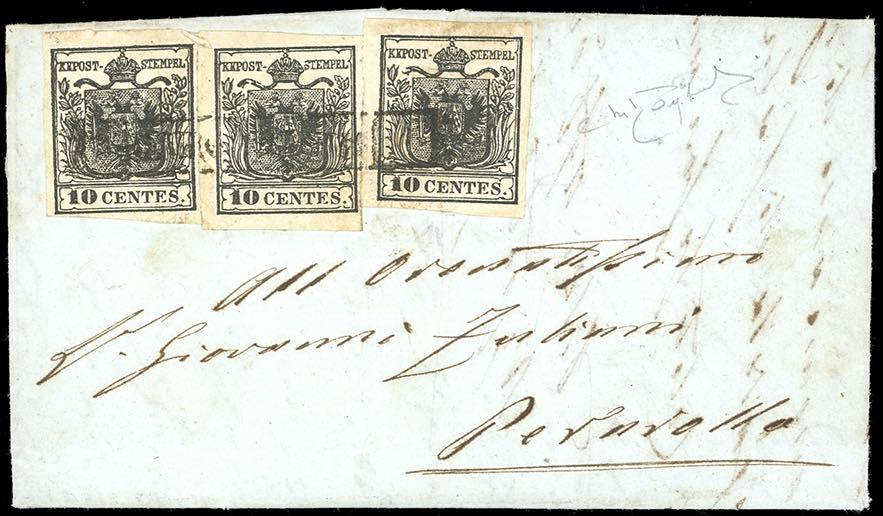 KKPOST-STEMPEL
10 CENTES.
KKPOST-STEMPEL
10 CENTES.
KKPOST-STEMPEL
10 CENTES.
All Ornatissimo
Sr. Giovanni Zuliani
Perarollo